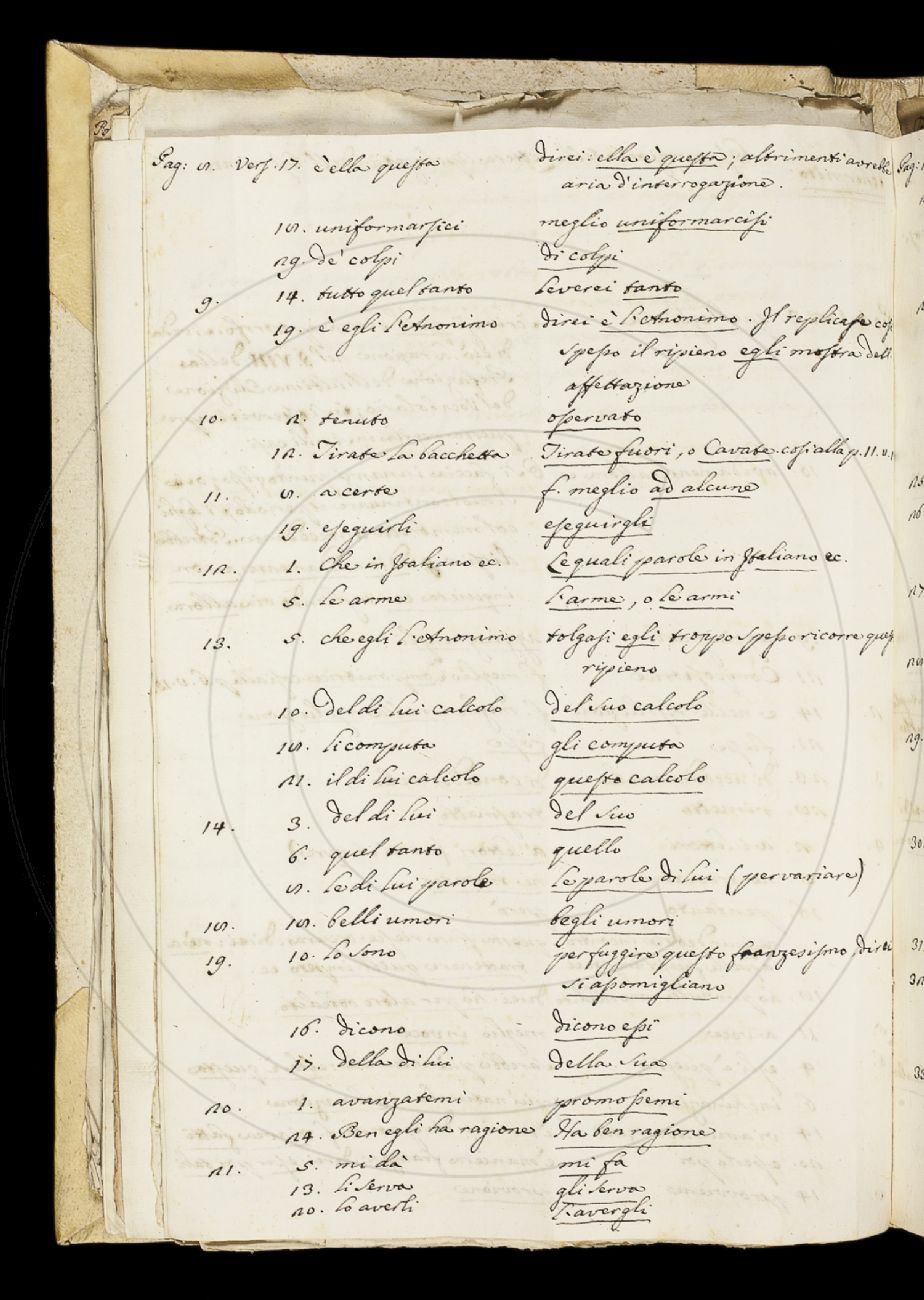 Pag: 8. Vers. 17. è ella questa direi: ella è questa; altrimenti avrebbe
aria d'interrogazione.
18. uniformarsici meglio uniformarcisi
29 de' colpi di colpi
9. 14. tutto quel tanto leverei tanto
19. è egli l'Anonimo direi è l'Anonimo. Il replicare così
spesso il ripieno egli mostra dell'
affettazione
10. 2. tenuto osservato
12. Tirate la bacchetta Tirate fuori, o Cavate. così alla p. 11. v.
11. 8. a certe f. meglio ad alcune
19. eseguirli eseguirgli
12. 1. Che in Italiano ec. Le quali parole in Italiano ec.
5. le arme l'arme, o le armi
13. 5. che egli l'Anonimo tolgasi egli troppo spesso ricorre
ripieno
10. del di lui calcolo del suo calcolo
18. li computa gli computa
21. il di lui calcolo questo calcolo
14. 3. del di lui del suo
6. quel tanto quello
8. le di lui parole le parole di lui (per variare)
18. 18. belli umori begli umori
19. 10. lo sono per fuggire questo franzesismo, direi
si assomigliano
16. dicono dicono essi
17. della di lui della sua
20. 1. avanzatemi promossemi
24. Ben egli ha ragione Ha ben ragione
21. 5. mi dà mi fa
13. li serva gli serva
20. lo averli l'avergli